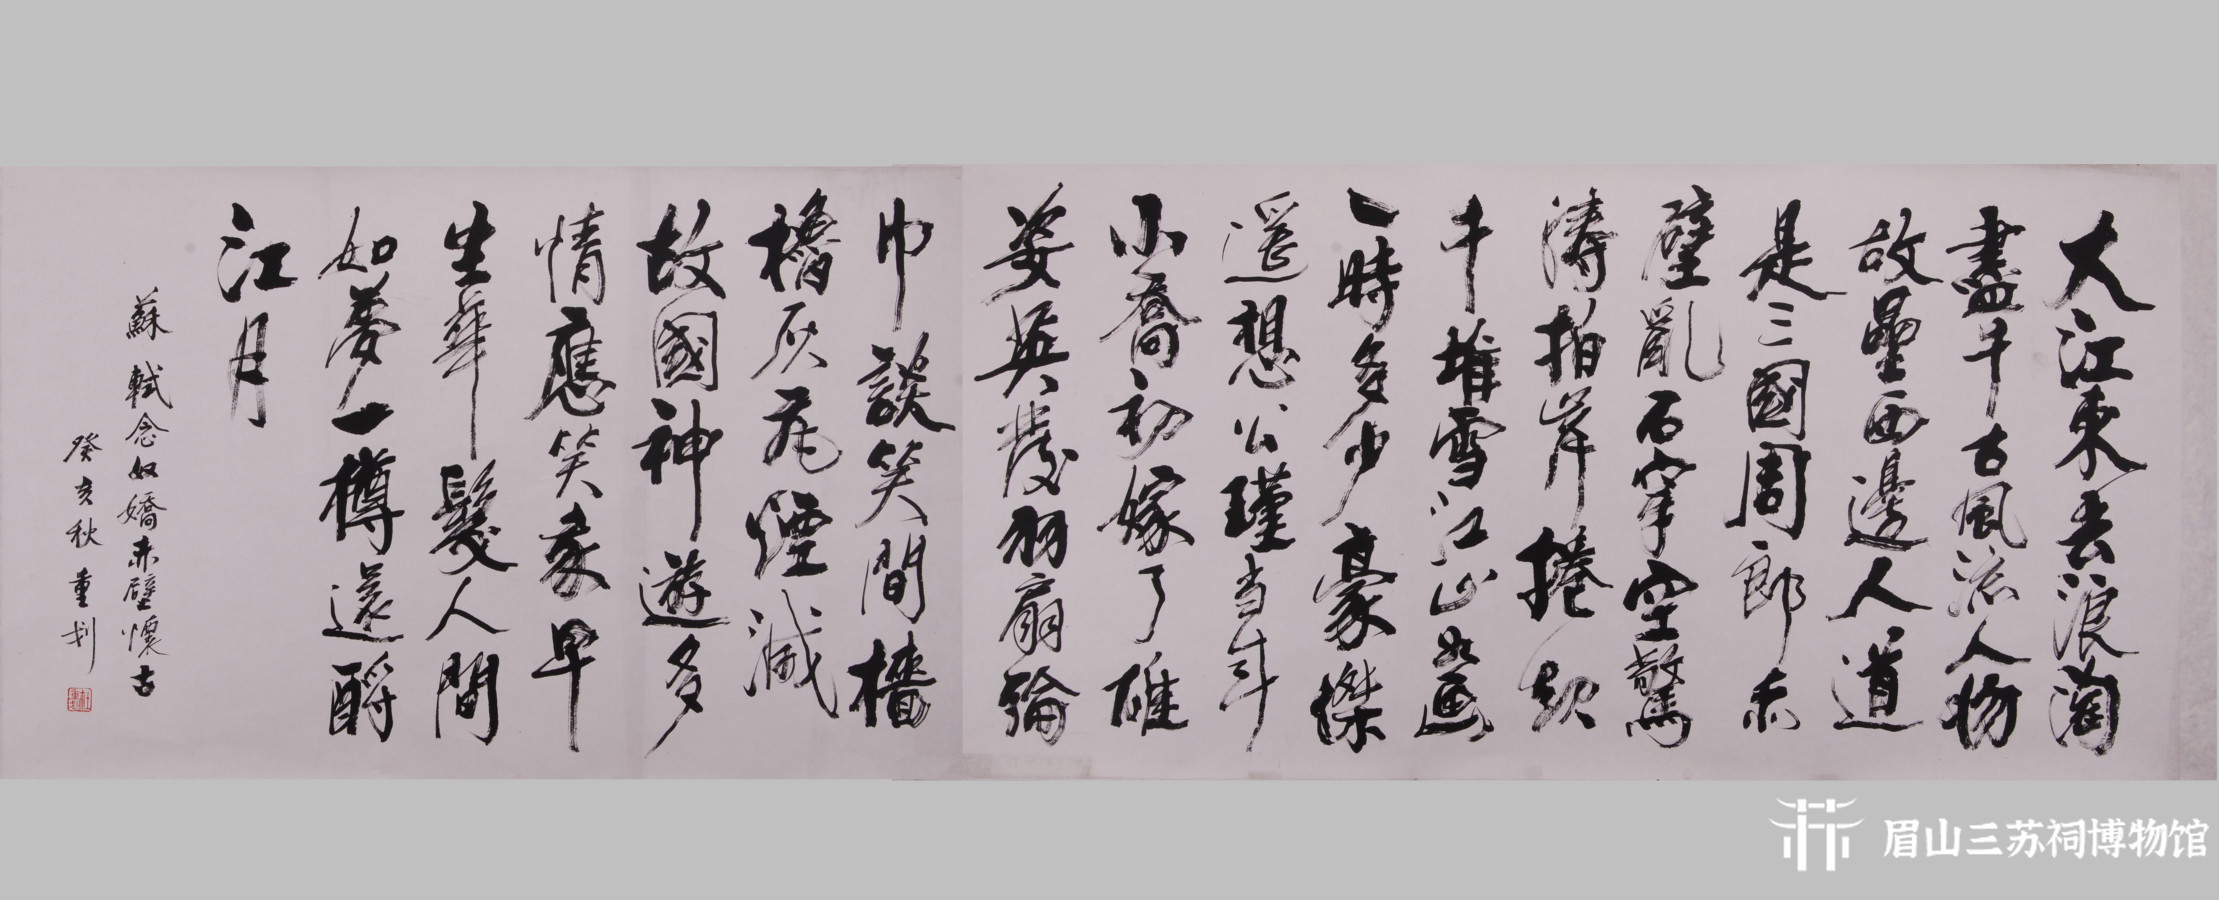 大江東去浪淘
盡千古風流人物
故壘西邊人道
是三國周郎赤
壁亂石穿空驚
濤拍岸捲起
千堆雪江山如畫
一時多少豪傑
遥想公瑾当年
小喬初嫁了雄
姿英發羽扇綸
巾談笑間檣
櫓灰飛煙滅
故國神遊多
情應笑我早
生華髮人間
如夢一樽還酹
江月
蘇軾念奴嬌赤壁懷古
癸亥秋重划
眉山三苏祠博物馆